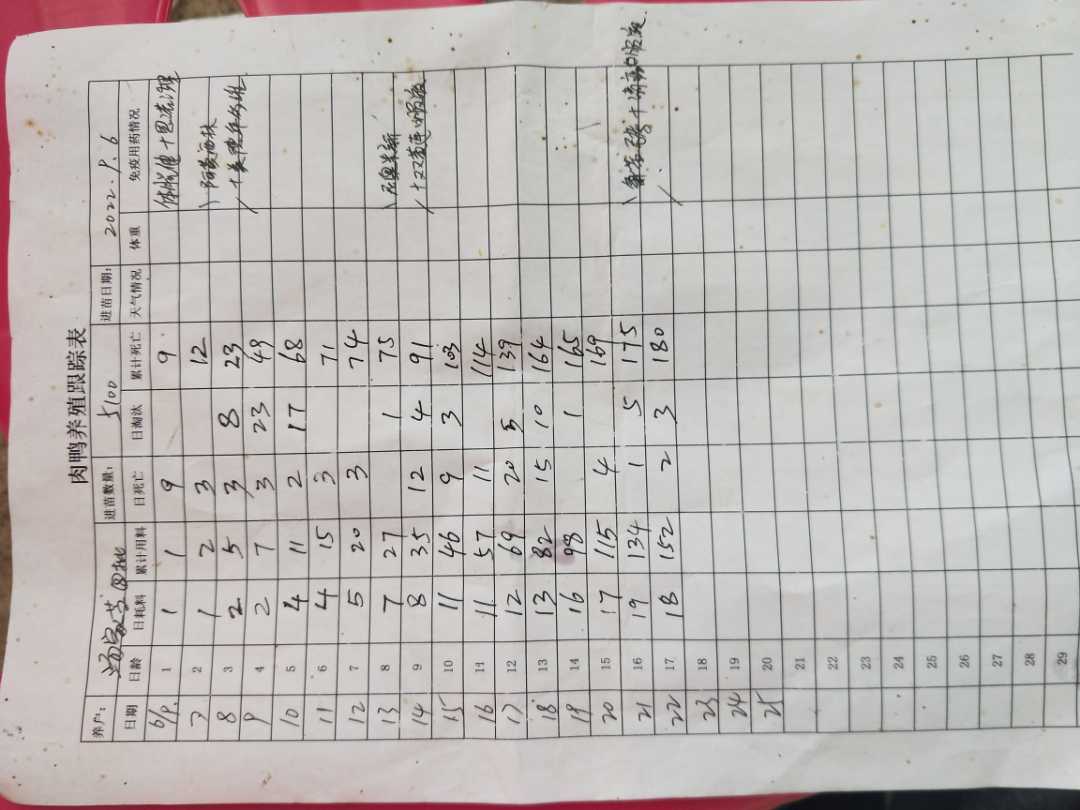 肉鸭养殖跟踪表
养户: 进苗数量: 5100 进苗日期: 2022.9.6
日期 日龄 日耗料 累计用料 日死亡 日淘汰 累计死亡 天气情况 体重 免疫用药情况
6/9. 1 1 1 9 9
7 2 1 2 3 12
8 3 2 5 3 8 23
9 4 2 7 3 23 49
10 5 4 11 2 17 68
11 6 4 15 3 71
12 7 5 20 3 74
13 8 7 27 1 75
14 9 8 35 12 4 91
15 10 11 46 9 3 103
16 11 11 57 11 114
17 12 12 69 20 5 139
18 13 13 82 15 10 164
19 14 16 98 1 165
20 15 17 115 4 169
21 16 19 134 1 5 175
22 17 18 152 2 3 180
23 18
24 19
25 20
21
22
23
24
25
26
27
28
29